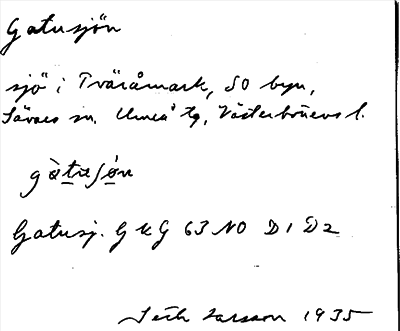 Gatusjön
sjö i Tväråmark, SO byn,
Sävars sn. Umeå tg, Västerbottens l.
gàtusjön
Gatusj. GKG 63 NO D1 D2
Seth Larsson 1935